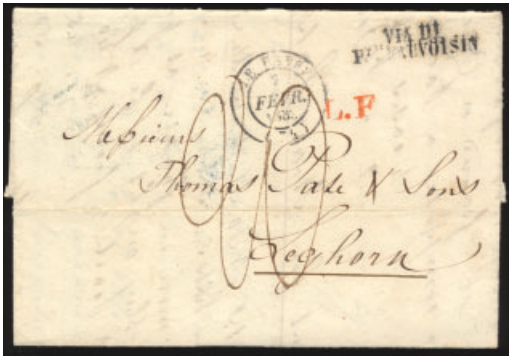 VIA DI
PT BEAUVOISIN
LE HAVRE
7
FEVR.
L.F
Messieurs
Thomas Pate & Sons
Leghorn